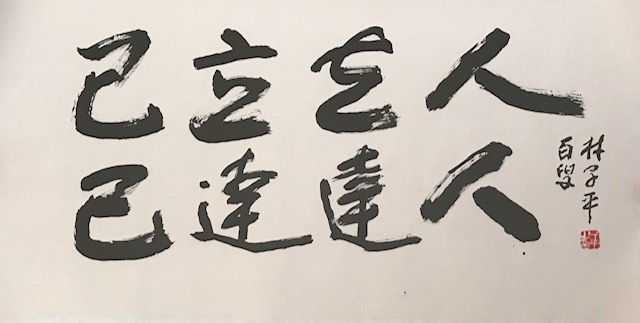 己立立人
己達達人
林子平
百叟